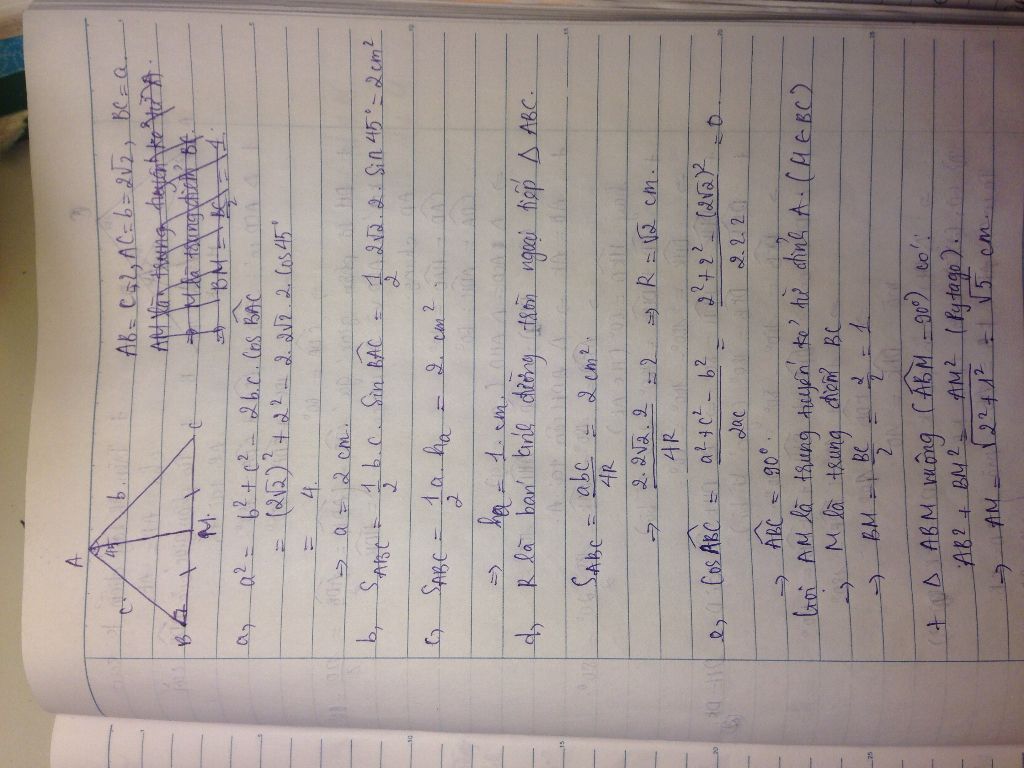 3)
A
C
b
45°
B
M
C
AB = c = 2, AC = b = 2√2, BC = a
AM là trung tuyến kẻ từ A.
⇒ M là trung điểm BC
⇒ BM = BC/2 = 1.
a, a² = b² + c² - 2b.c. cos BAC
= (2√2)² + 2² - 2. 2√2. 2. cos 45°
= 4
⇒ a = 2 cm.
b, S_ABC = 1/2 b. c. sin BAC = 1/2 . 2√2. 2. sin 45° = 2 cm²
c, S_ABC = 1/2 a. ha = 2. cm².
⇒ ha = 1. cm.
d, R là bán kính đường tròn ngoại tiếp Δ ABC.
S_ABC = abc/4R = 2 cm².
⇒ 2. 2√2. 2/4R = 2 ⇒ R = √2 cm.
e, Cos ABC = a² + c² - b²/2ac = 2² + 2² - (2√2)²/2. 2. 2 = 0.
⇒ ABC = 90°.
AM là trung tuyến kẻ từ đỉnh A. (M ∈ BC)
⇒ M là trung điểm BC
⇒ BM = BC/2 = 2/2 = 1.
+ Δ ABM vuông (ABM = 90°) có:
AB² + BM² = AM² (Pytago).
⇒ AM = √2² + 1² = √5 cm.